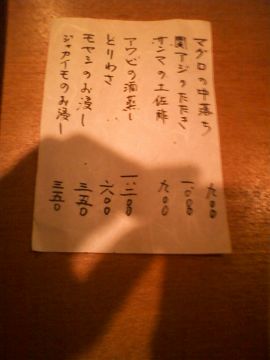 マグロの中落ち 九〇〇
関アジのたたき 一、〇〇〇
サンマの土佐酢 九〇〇
アワビの酒蒸し 一、二〇〇
とりわさ 六〇〇
モヤシのお浸し 三五〇
ジャガイモのお浸し 三五〇